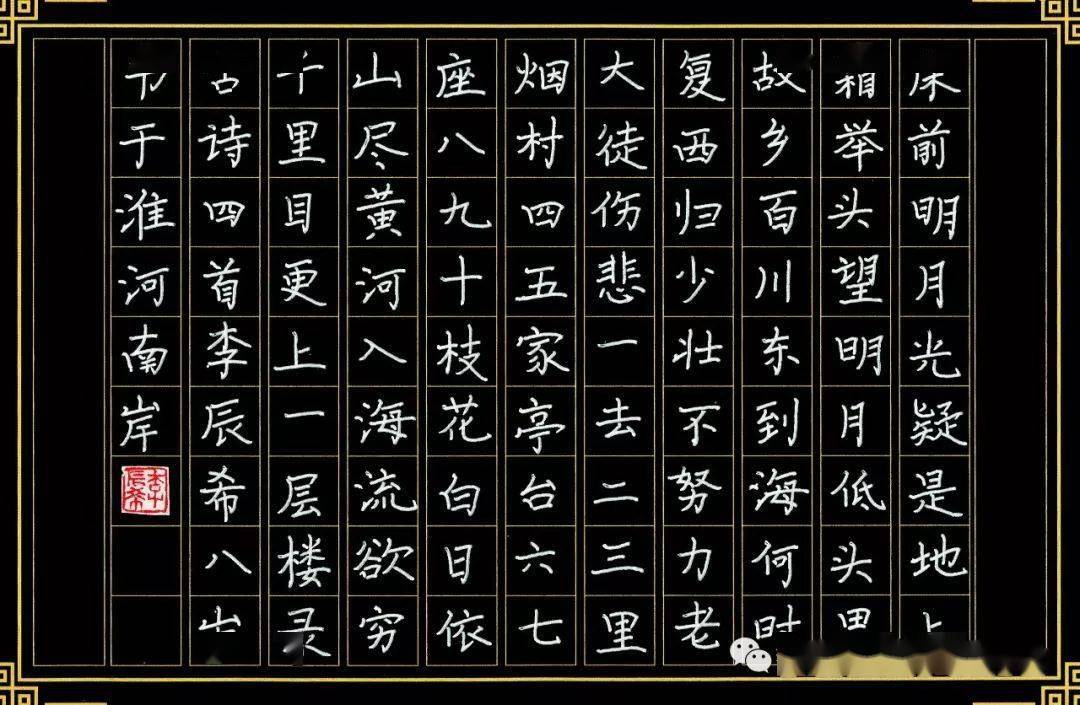 床前明月光疑是地上
霜举头望明月低头思
故乡百川东到海何时
复西归少壮不努力老
大徒伤悲一去二三里
烟村四五家亭台六七
座八九十枝花白日依
山尽黄河入海流欲穷
千里目更上一层楼录
古诗四首李辰希八岁
于淮河南岸
李辰希